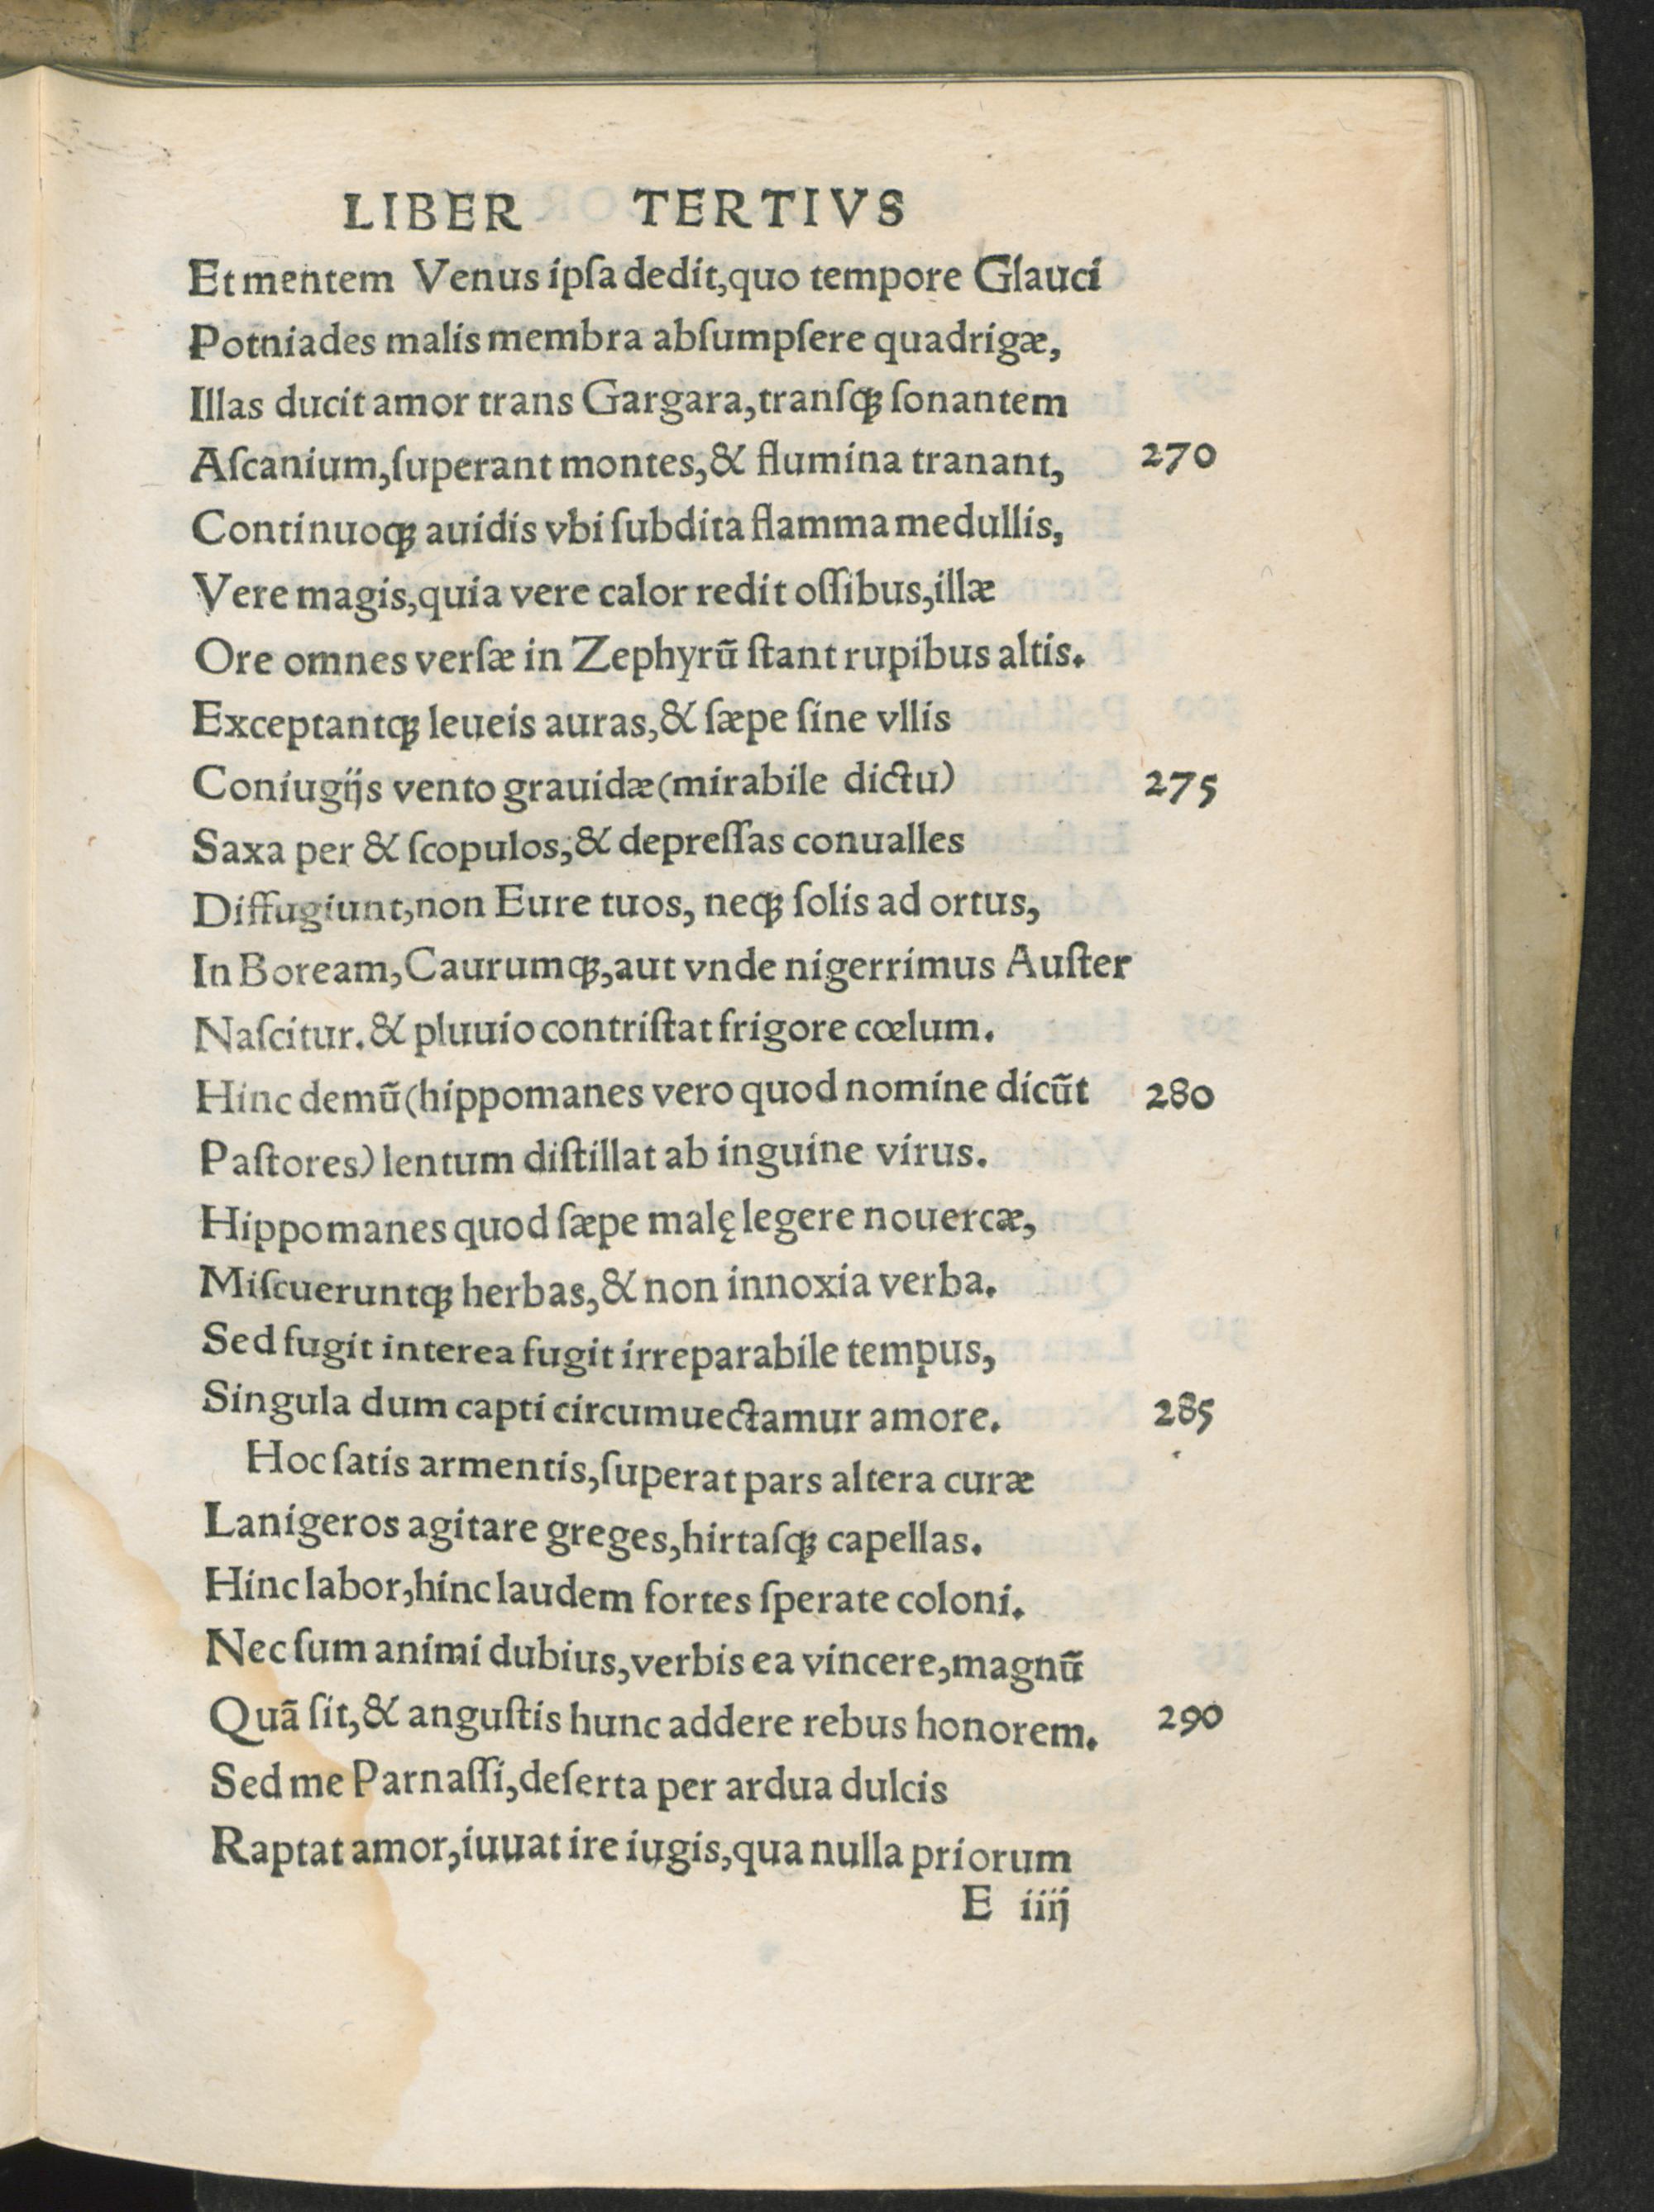 LIBER TERTIVS
Et mentem Venus ipſa dedit, quo tempore Glauci
Potniades malis membra abſumpſere quadrigæ,
Illas ducit amor trans Gargara, tranſqꝫ ſonantem
Aſcanium, ſuperant montes, & flumina tranant, 270
Continuoqꝫ auidis vbi ſubdita flamma medullis,
Vere magis, quia vere calor redit oſſibus, illæ
Ore omnes verſæ in Zephyrũ ſtant rupibus altis.
Exceptantqꝫ leueis auras, & ſæpe ſine vllis
Coniugijs vento grauidæ (mirabile dictu) 275
Saxa per & ſcopulos, & depreſſas conualles
Diffugiunt, non Eure tuos, neqꝫ ſolis ad ortus,
In Boream, Caurumqꝫ, aut vnde nigerrimus Auſter
Naſcitur. & pluuio contriſtat frigore cœlum.
Hinc demũ (hippomanes vero quod nomine dicũt 280
Paſtores) lentum diſtillat ab inguine virus.
Hippomanes quod ſæpe malę legere nouercæ,
Miſcueruntqꝫ herbas, & non innoxia verba.
Sed fugit interea fugit irreparabile tempus,
Singula dum capti circumuectamur amore. 285
Hoc ſatis armentis, ſuperat pars altera curæ
Lanigeros agitare greges, hirtaſqꝫ capellas.
Hinc labor, hinc laudem fortes ſperate coloni.
Nec ſum animi dubius, verbis ea vincere, magnũ
Quã ſit, & anguſtis hunc addere rebus honorem. 290
Sed me Parnaſſi, deſerta per ardua dulcis
Raptat amor, iuuat ire iugis, qua nulla priorum
E iiij